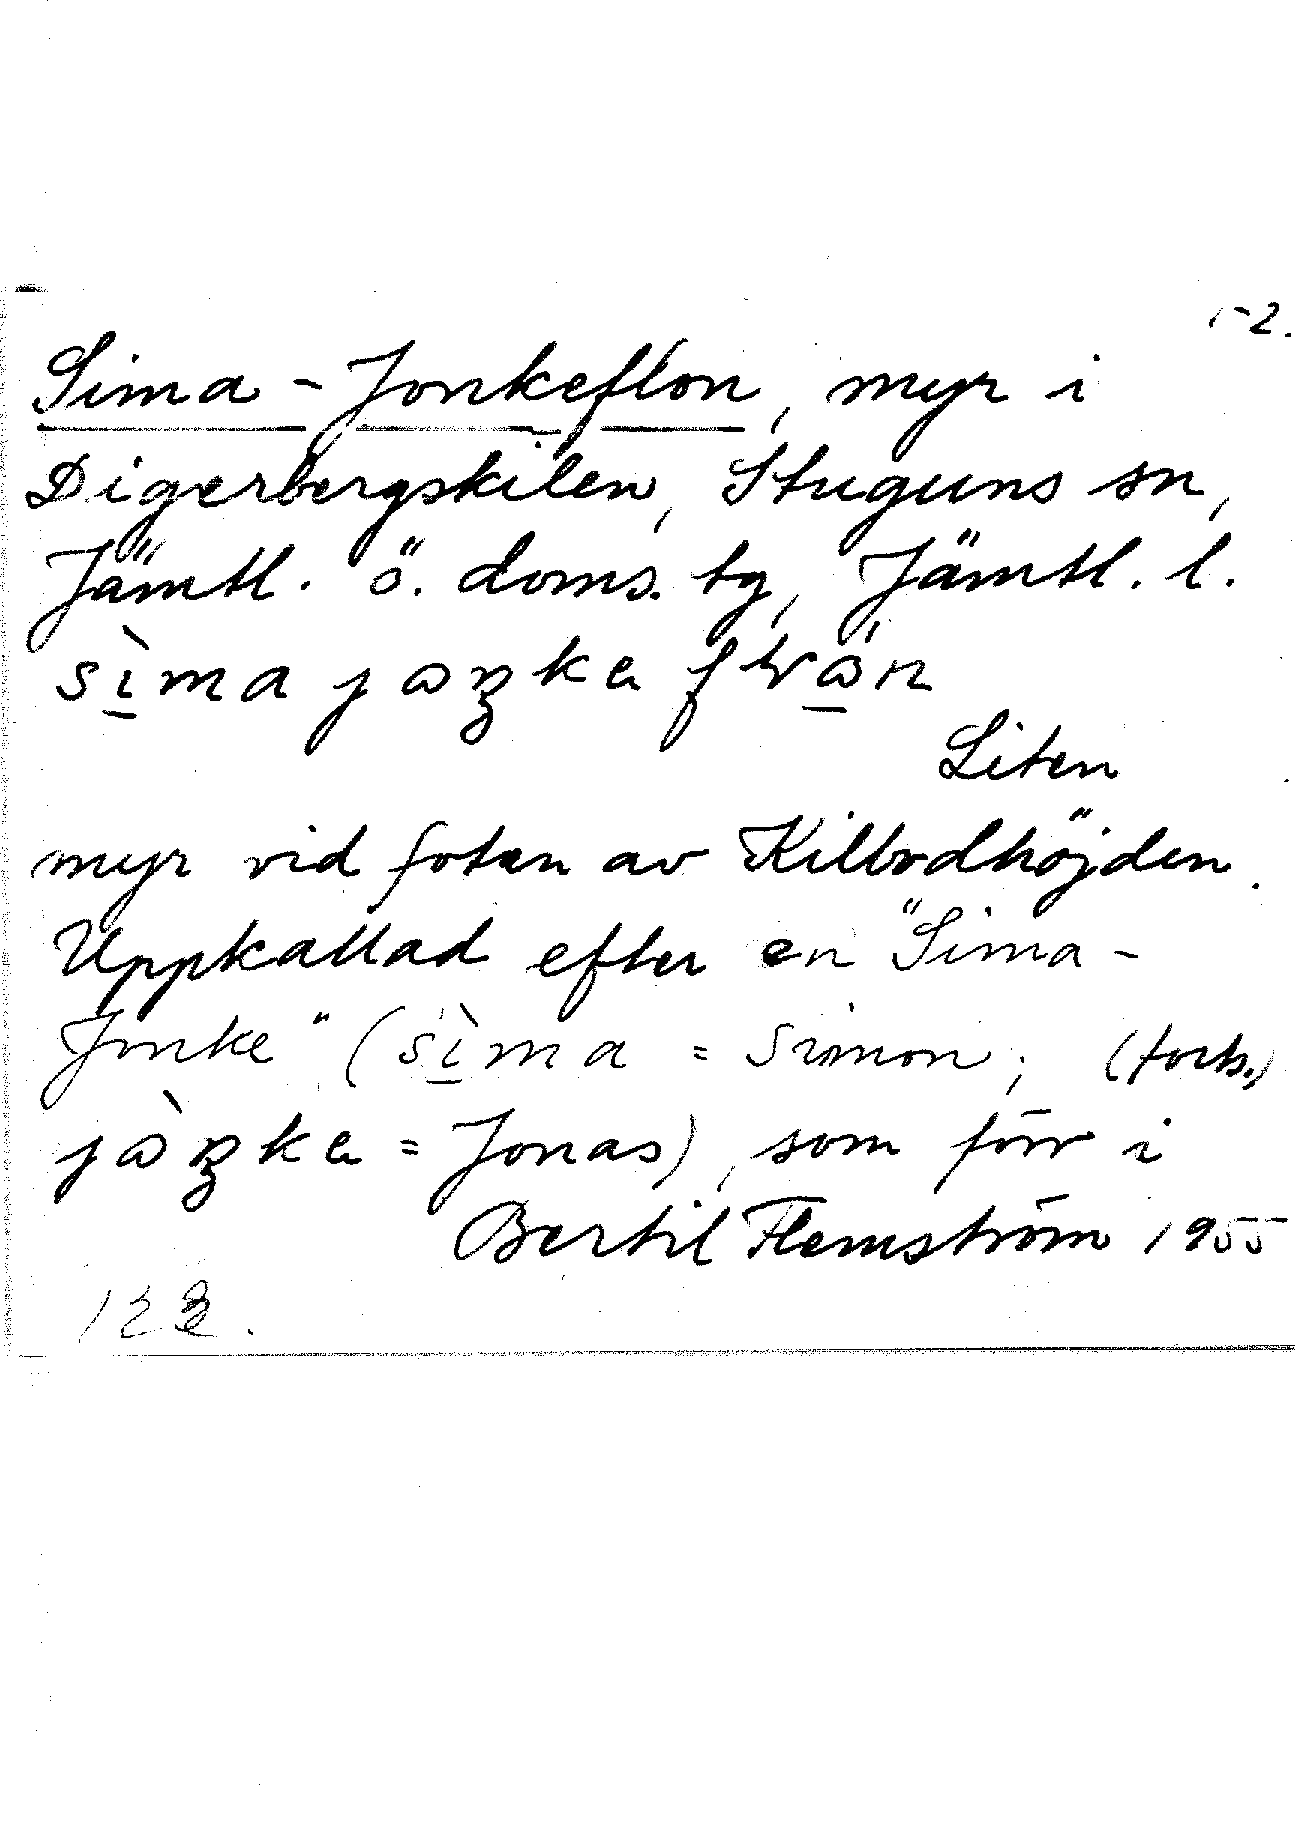 1-2.
Sima-Jonkeflon, myr i
Digerbergskilen, Stuguns sn,
Jämtl. ö. doms. tg, Jämtl. l.
Liten
myr vid foten av Kilbodhöjden.
Uppkallad efter en "Sima-
Jonke" (sìma = Simon; (forts.)
= Jonas), som förr i
Bertil Flemström 1955